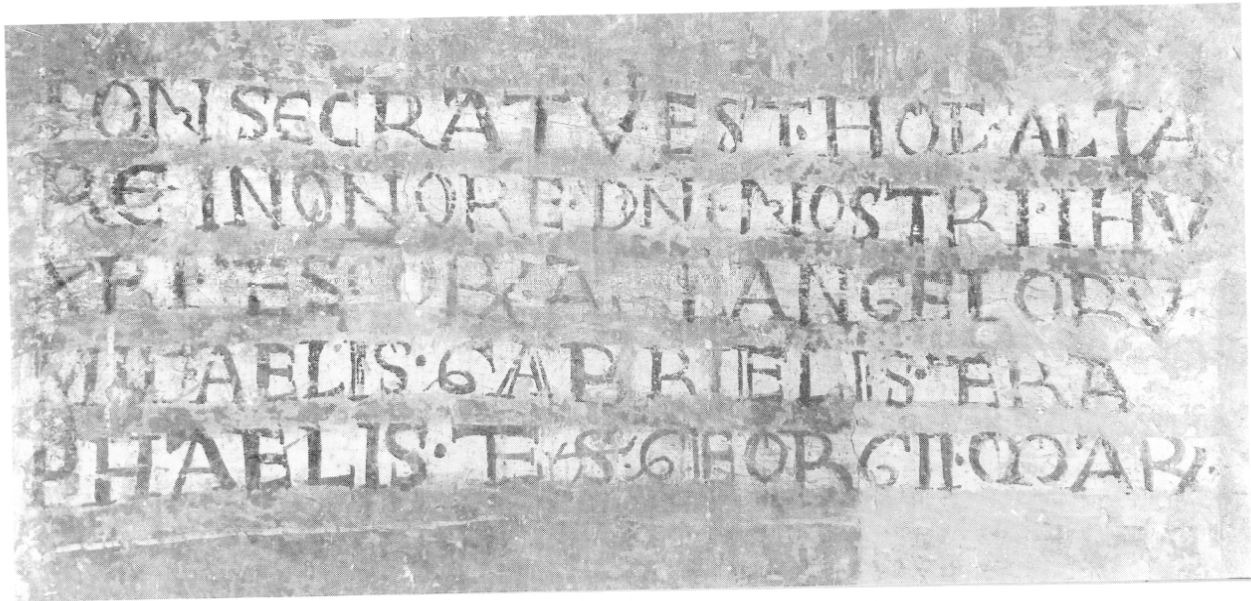 CONSECRATV EST·HOC·ALTA
RE INONORE·DNI·NOSTRI·IHV
XPI·ET S ANGELORV
MICAELIS·GABRIELIS·ET RA
PHAELIS·ET S·GEORGII·MAR